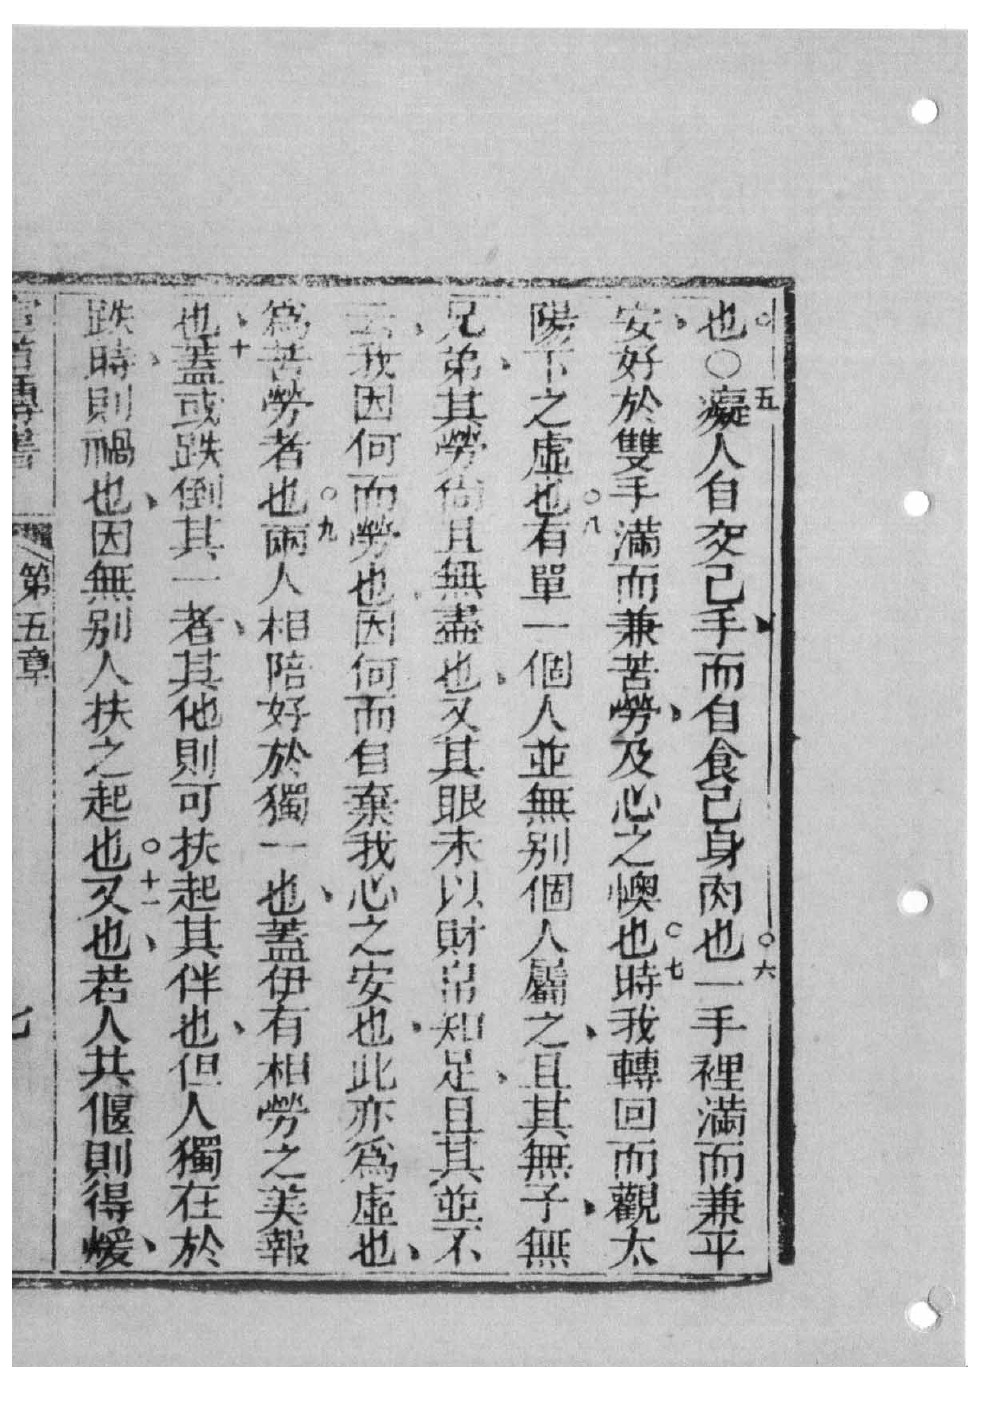 也○五癡人自交己手而自食己身肉也○六一手裡滿而兼平
安好於雙手滿而兼苦勞及心之懊也○七時我轉回而觀太
陽下之虛也○八有單一個人並無別個人屬之且其無子無
兄弟其勞尙且無盡也又其眼未以財帛知足且其並不
云我因何而勞也因何而自棄我心之安也此亦爲虛也
爲苦勞者也○九兩人相陪好於獨一也蓋伊有相勞之美報
也十蓋或跌倒其一者其他則可扶起其伴也但人獨在於
跌時則禍也因無別人扶之起也○十一又也若人共偃則得煖
書 第五章 七